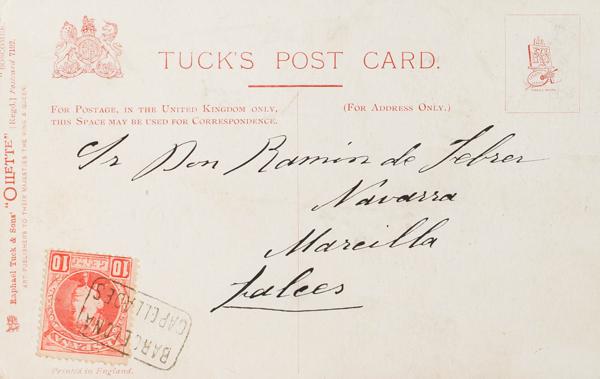 TUCK'S POST CARD.
FOR POSTAGE, IN THE UNITED KINGDOM ONLY,
THIS SPACE MAY BE USED FOR CORRESPONDENCE.
(FOR ADDRESS ONLY.)
Sr Don Ramón de Febrer
Navarra
Marcilla
Falces
10 10
BARCELONA
CAPELLADES
Printed in England.
Raphael Tuck & Sons' "OILETTE" [Regd.] Postcard 7192.
ART PUBLISHERS TO THEIR MAJESTIES THE KING & QUEEN.